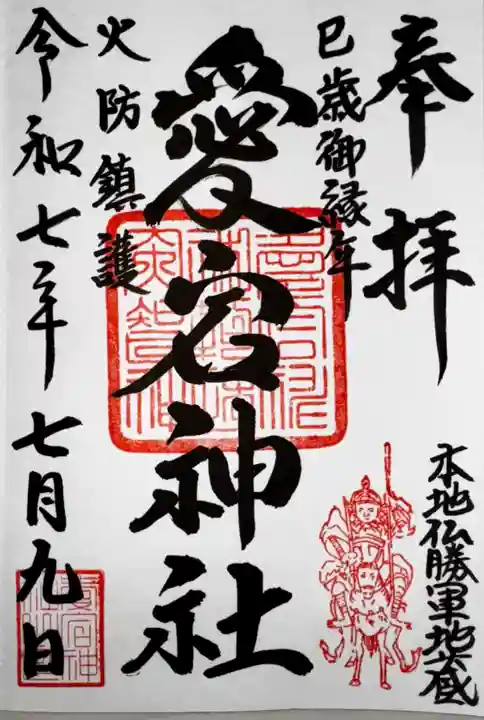 奉拝
巳歳御縁年
本地仏勝軍地蔵
愛宕神社
火防鎮護
令和七年七月九日